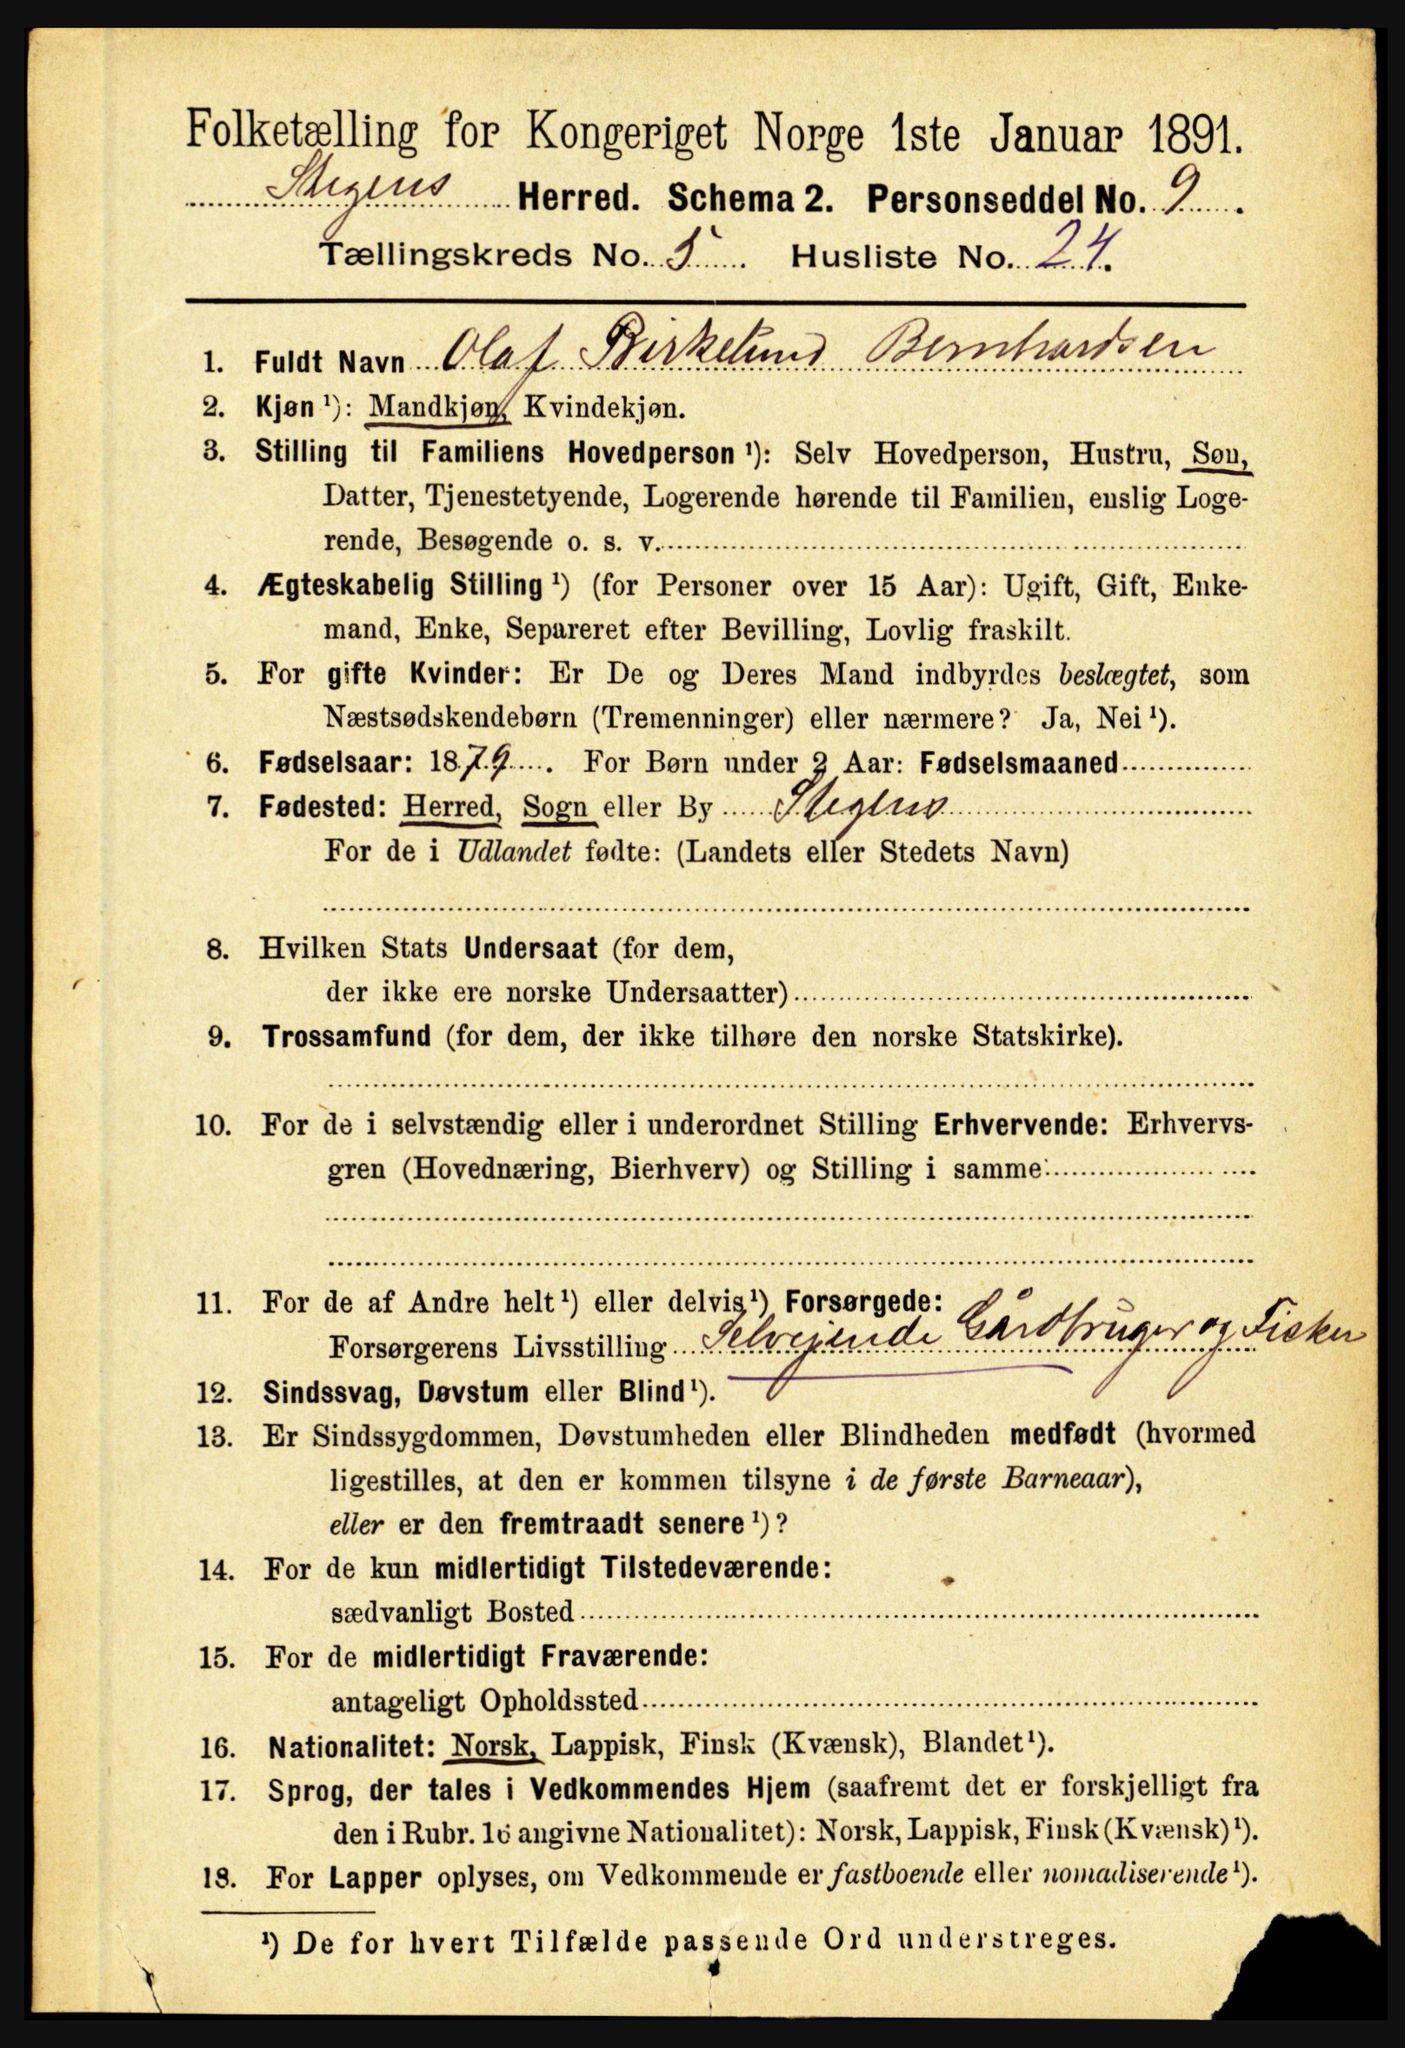 Folketælling for Kongeriget Norge 1ste Januar 1891.
Stegens Herred. Schema 2. Personseddel No. 9.
Tællingskreds No. 5. Husliste No. 24.
1. Fuldt Navn Olaf Birkelund Bernhardsen
2. Kjøn ¹): Mandkjøn, Kvindekjøn.
3. Stilling til Familiens Hovedperson ¹): Selv Hovedperson, Hustru, Søn,
Datter, Tjenestetyende, Logerende hørende til Familien, enslig Loge-
rende, Besøgende o. s. v.
4. Ægteskabelig Stilling ¹) (for Personer over 15 Aar): Ugift, Gift, Enke-
mand, Enke, Separeret efter Bevilling, Lovlig fraskilt.
5. For gifte Kvinder: Er De og Deres Mand indbyrdes beslægtet, som
Næstsødskendebørn (Tremenninger) eller nærmere? Ja, Nei ¹).
6. Fødselsaar: 1879. For Børn under 2 Aar: Fødselsmaaned
7. Fødested: Herred, Sogn eller By Stegens
For de i Udlandet fødte: (Landets eller Stedets Navn)
8. Hvilken Stats Undersaat (for dem,
der ikke ere norske Undersaatter)
9. Trossamfund (for dem, der ikke tilhøre den norske Statskirke).
10. For de i selvstændig eller i underordnet Stilling Erhvervende: Erhvervs-
gren (Hovednæring, Bierhverv) og Stilling i samme
11. For de af Andre helt ¹) eller delvis ¹) Forsørgede:
Forsørgerens Livsstilling Selvejende Gårdbruger og Fisker
12. Sindssvag, Døvstum eller Blind ¹).
13. Er Sindssygdommen, Døvstumheden eller Blindheden medfødt (hvormed
ligestilles, at den er kommen tilsyne i de første Barneaar),
eller er den fremtraadt senere ¹)?
14. For de kun midlertidigt Tilstedeværende:
sædvanligt Bosted
15. For de midlertidigt Fraværende:
antageligt Opholdssted
16. Nationalitet: Norsk, Lappisk, Finsk (Kvænsk), Blandet ¹).
17. Sprog, der tales i Vedkommendes Hjem (saafremt det er forskjelligt fra
den i Rubr. 16 angivne Nationalitet): Norsk, Lappisk, Finsk (Kvænsk) ¹).
18. For Lapper oplyses, om Vedkommende er fastboende eller nomadiserende ¹).
¹) De for hvert Tilfælde passende Ord understreges.